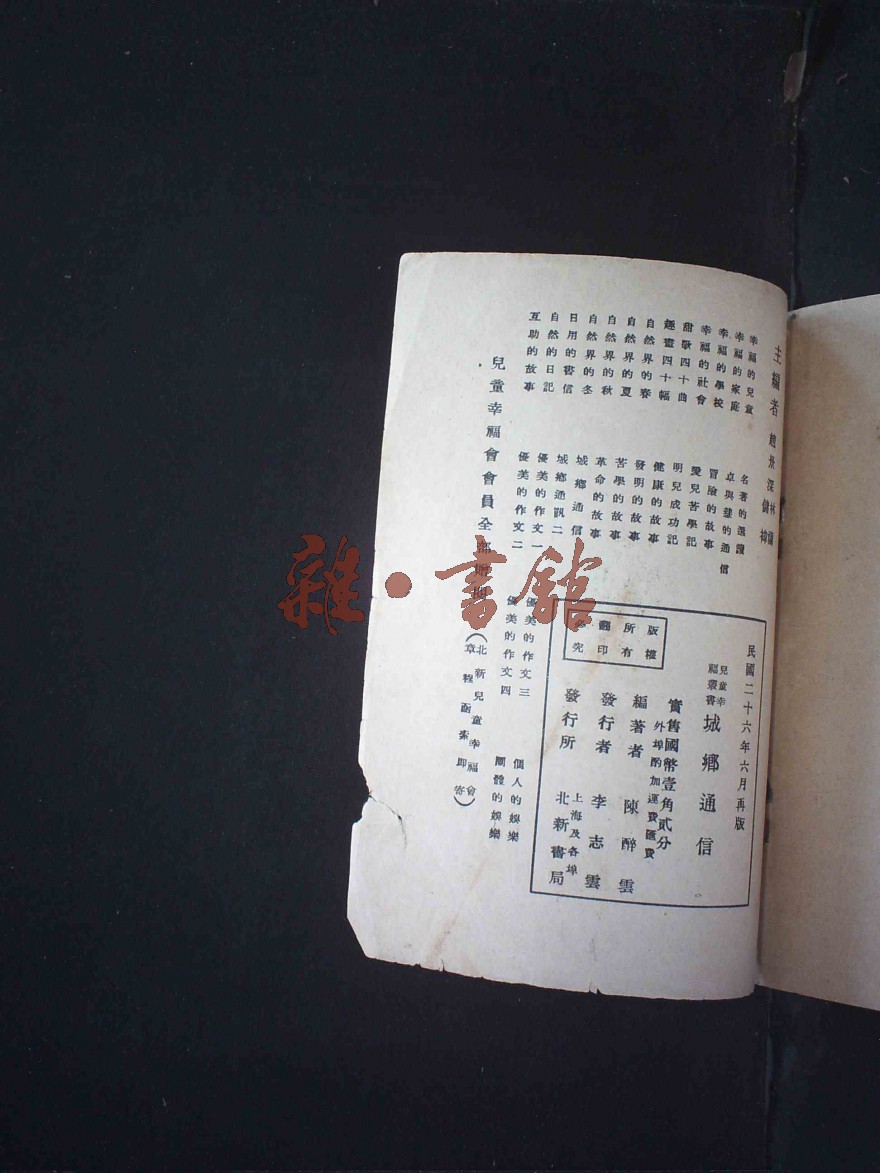 主編者 趙景深 林蘭
幸福的兒童
幸福的家庭
幸福的學校
幸福的社會
甜歌四十曲
趣畫四十幅
自然界的春
自然界的夏
自然界的秋
自然界的冬
日用的書信
自然的日記
互助的故事
名著的選讀
卓與慧的通信
冒險的故事
愛兒苦學記
明兒成功記
健康的故事
發明的故事
苦學的故事
革命的故事
城鄉通信
城鄉通訊二
優美的作文一
優美的作文二
優美的作文三
優美的作文四
個人的娛樂
團體的娛樂
兒童幸福會會員全部
(北新兒童幸福會
章程函索即寄)
民國二十六年六月再版
兒童幸福叢書
城鄉通信
實售國幣壹角貳分
外埠酌加運費匯費
編著者 陳醉雲
發行者 李志雲
發行所 上海及各埠 北新書局
版權
所有
翻印
必究
雜·書館